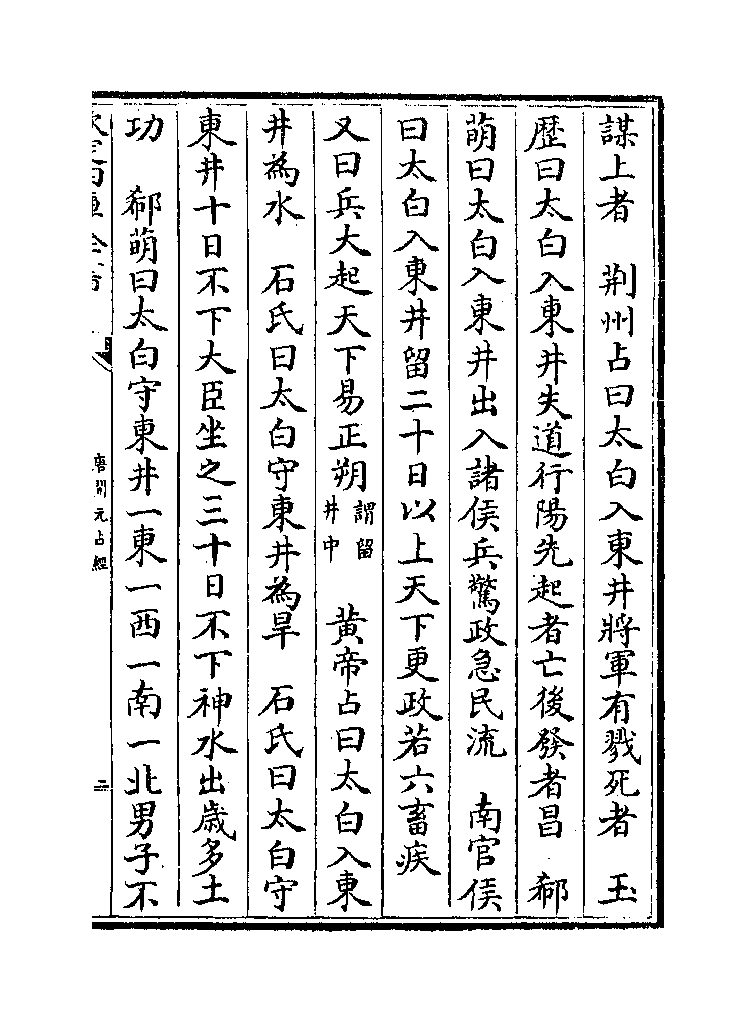 謀上者　荆州占曰太白入東井將軍有戮死者　玉
歴曰太白入東井失道行陽先起者亡後發者昌　郗
萌曰太白入東井出入諸侯兵驚政急民流　南官侯
曰太白入東井留二十日以上天下更政若六畜疾
又曰兵大起天下易正朔謂留井中　黄帝占曰太白入東
井為水　石氏曰太白守東井為旱　石氏曰太白守
東井十日不下大臣坐之三十日不下神水出歲多土
功　郗萌曰太白守東井一東一西一南一北男子不
唐開元占經
二